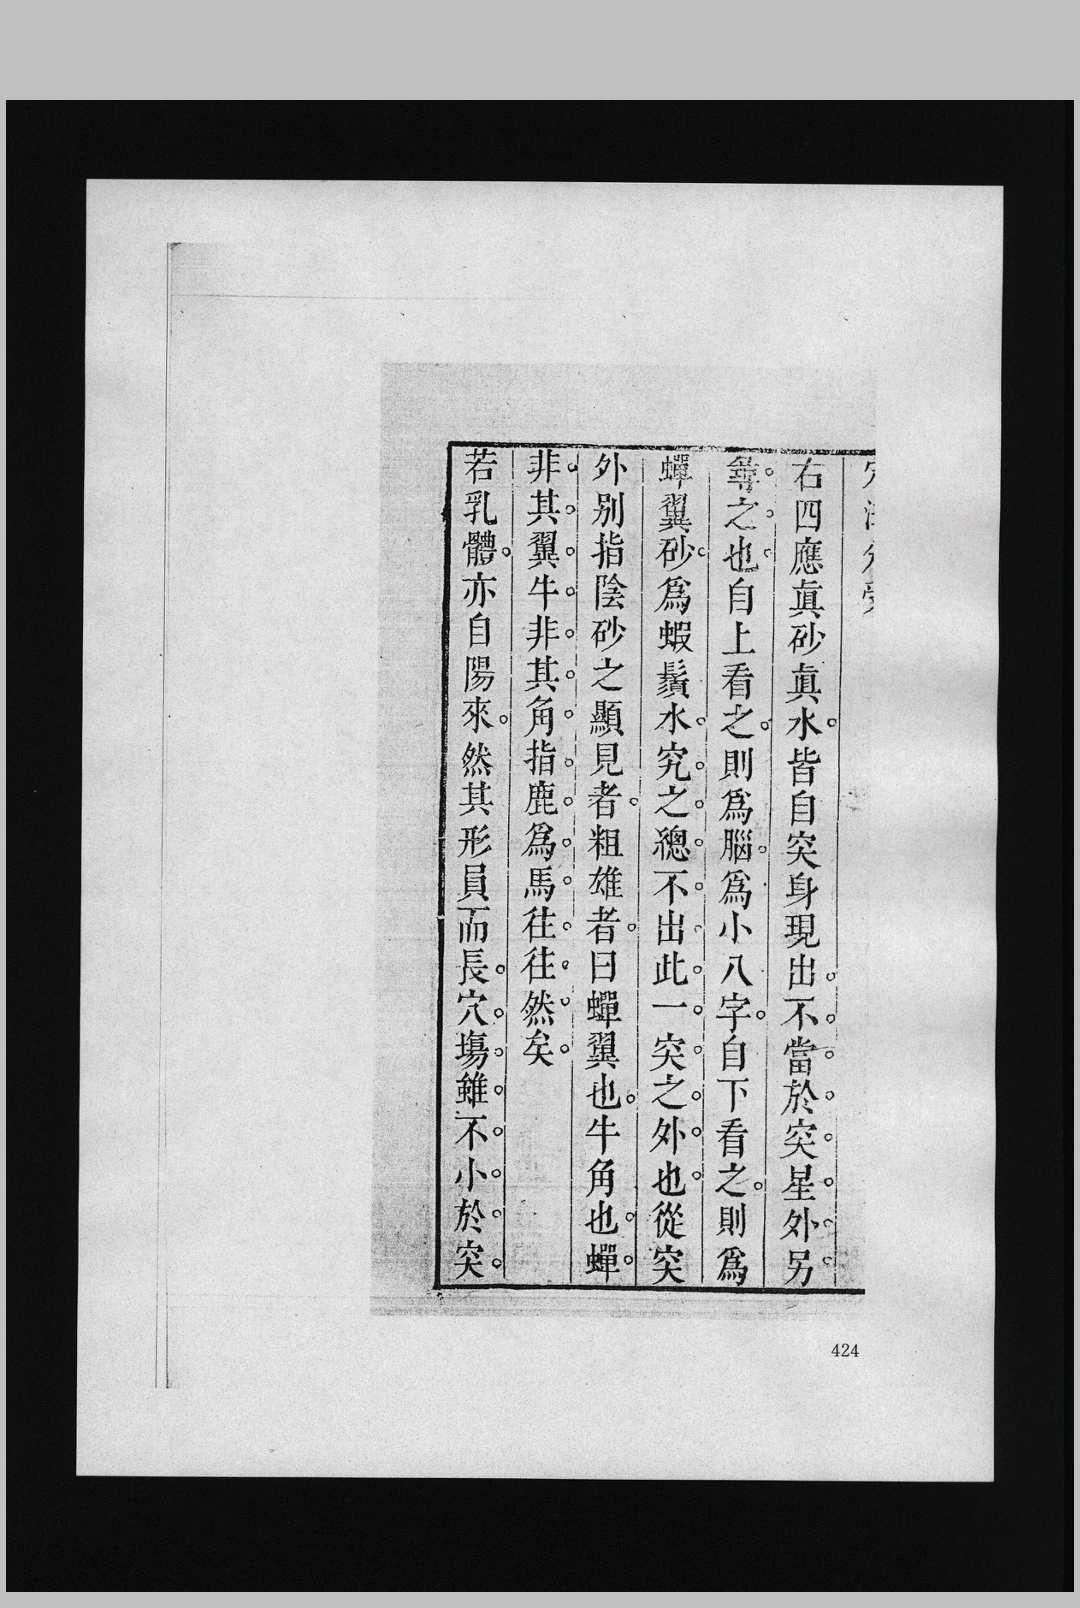 右四應眞砂眞水。皆自突身現出。不。當。於。突。星。外。另。
尋。之。也。自上看之。則爲腦。爲小八字。自下看之。則爲
蟬翼砂。爲蝦鬚水。究。之。總。不。出。此。一。突。之。外。也。從突
外别指陰砂之顯見者。粗雄者。曰蟬翼也。牛角也。蟬。
非。其。翼。牛。非。其。角。指。鹿。爲。馬。往。往。然。矣。
若乳體。亦自陽來。然其形員而長。穴。塲。雖。不。小。於。突。
424